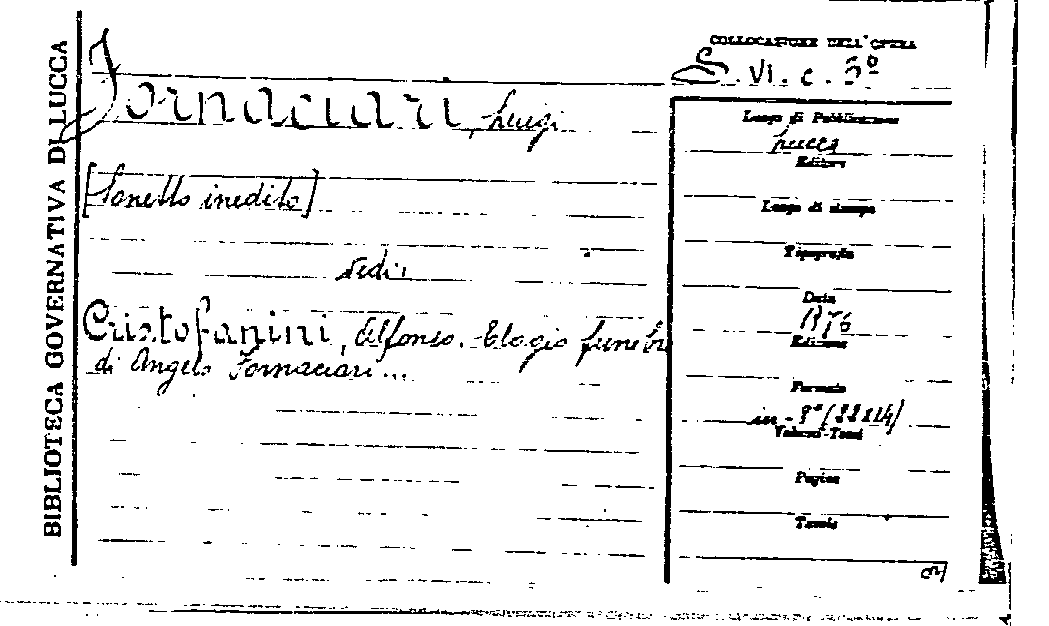 BIBLIOTECA GOVERNATIVA DI LUCCA
COLLOCAZIONE DELL'OPERA
VI. c. 5º
Fornaciari, Luigi
[Sonetto inedito]
vedi:
Cristofanini, Alfonso. Elogio funebre
di Angelo Fornaciari...
Luogo di Pubblicazione
Lucca
Editore
Luogo di stampa
Tipografia
Data
1876
Edizione
Formato
in-8º (22x14)
Volumi-Tomi
Pagine
Tavole